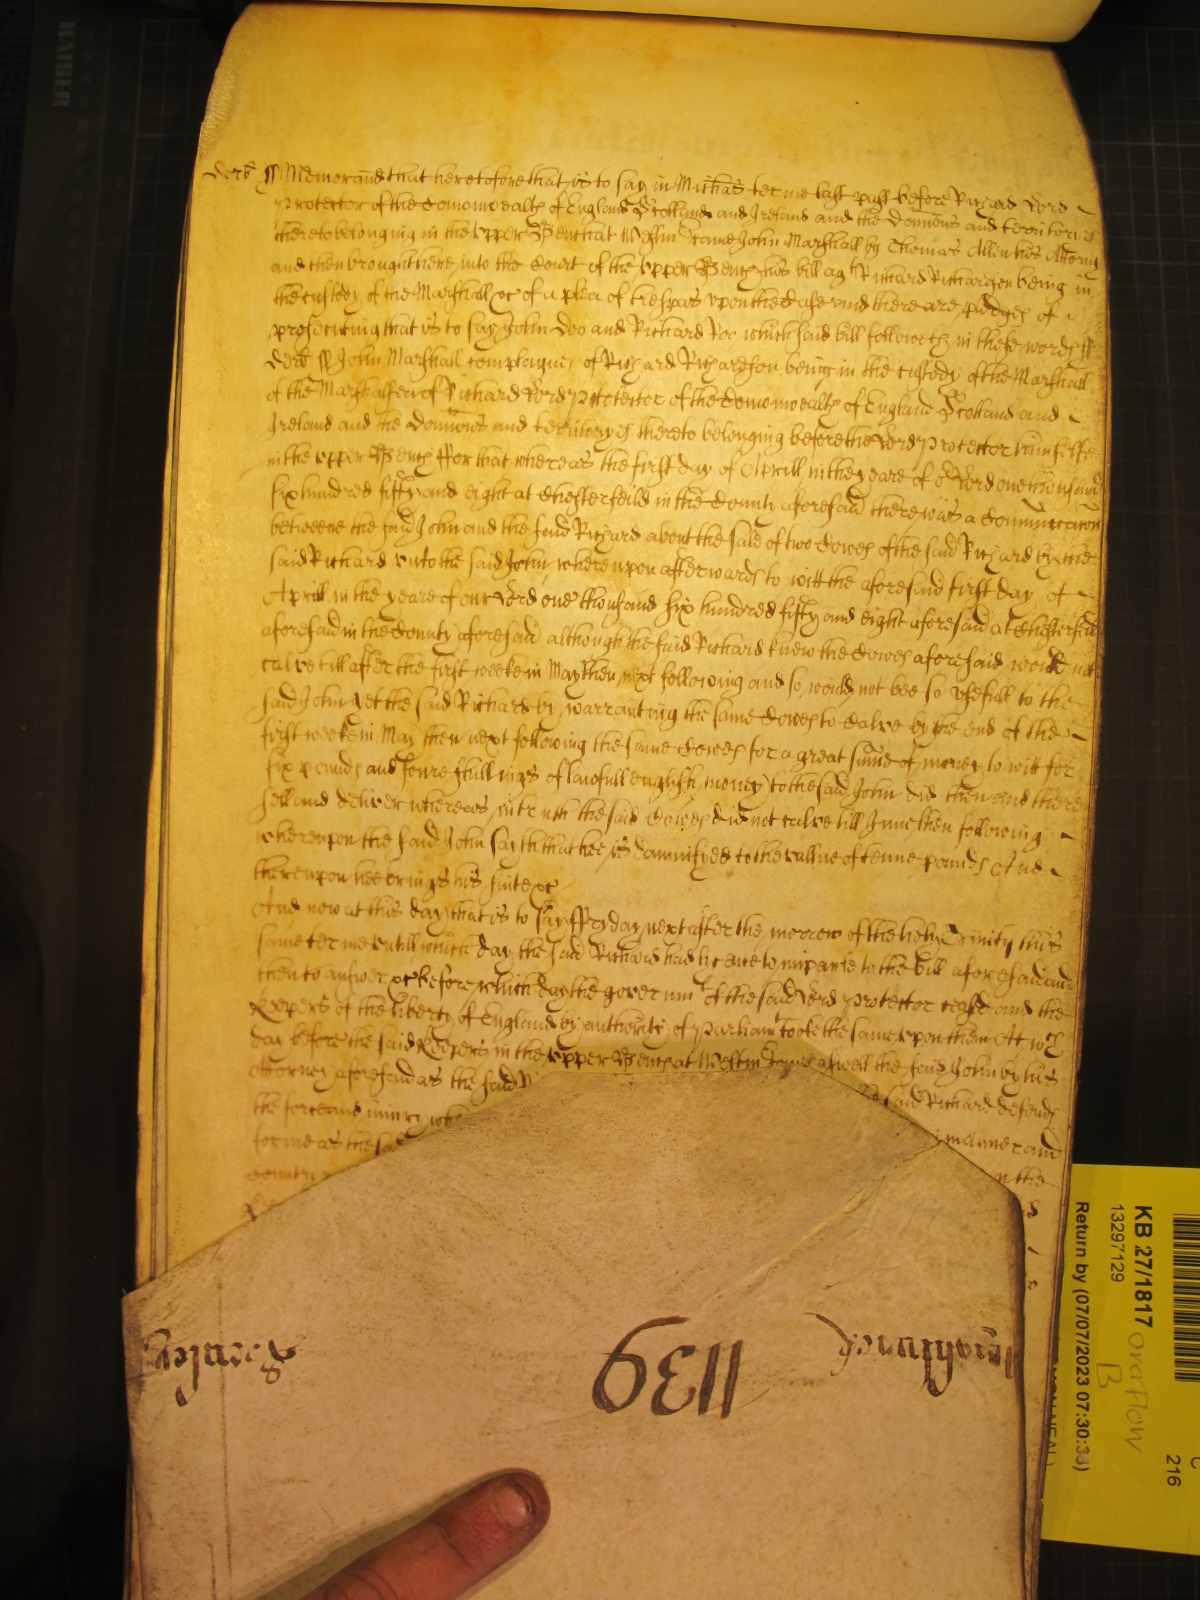 Derb ss Memorand that heretofore that is to say in Michas terme last past before Richard Lord
Protector of the Comonwealth of England Scotland and Ireland and the Domions and territories
thereto belonging in the upper Bench at Westm Came John Marshall by Thomas Allen his Attorny
and then brought here into the Court of the upper Bench his bill agt Richard Richardson being in
the custody of the Marshall &c of a plea of trespas upon the Case and there are pledges of
prosecuting that is to say John Doo and Richard Roo which said bill followeth in these words ss
Derb ss John Marshall complaynes of Richard Richardson being in the custody of the Marshall
of the Marshalsea of Richard Lord Protector of the Comonwealth of England Scotland and
Ireland and the Domions and territoryes thereto belonging before the Lord Protector himselfe
in the upper Bench ffor that whereas the first day of Aprill in the yeare of or Lord one thousand
six hundred fifty and eight at Chesterfeild in the County aforesaid there was a Comunicacon
betweene the said John and the said Richard about the sale of two Cowes of the said Richard by the
said Richard unto the said John whereupon afterwards to witt the aforesaid first day of
Aprill in the yeare of our Lord one thousand six hundred fifty and eight aforesaid at Chesterfeild
aforesaid in the County aforesaid although the said Richard knew the Cowes aforesaid would not
calve till after the first weeke in May then next following and so would not bee so usefull to the
said John yet the said Richard by warranting the same Cowes to Calve by the end of the
first weeke in May then next following the same Cowes for a great sume of money to witt for
six pounds and foure shillings of lawfull english money to the said John did then and there
sell and deliver whereas in truth the said Cowes did not calve till June then following
whereupon the said John sayth that hee is damnifyed to the vallue of tenne pounds And
thereupon hee brings his suite &c
And now at this day that is to say ffryday next after the morrow of the holy Trinity this
same terme untill which day the said Richard had licence to imparle to the bill aforesaid and
then to answer &c before which day the governmt of the said Lord Protector ceast and the
Keepers of the liberty of England by authority of Parliamt tooke the same upon them Att wch
day before the said Keepers in the upper Bench at Westm Came aswell the said John by his
Attorney aforesaid as the said R
said Richard defends
the force and iniury whe
manner and
forme as the sa
n the
country
1139